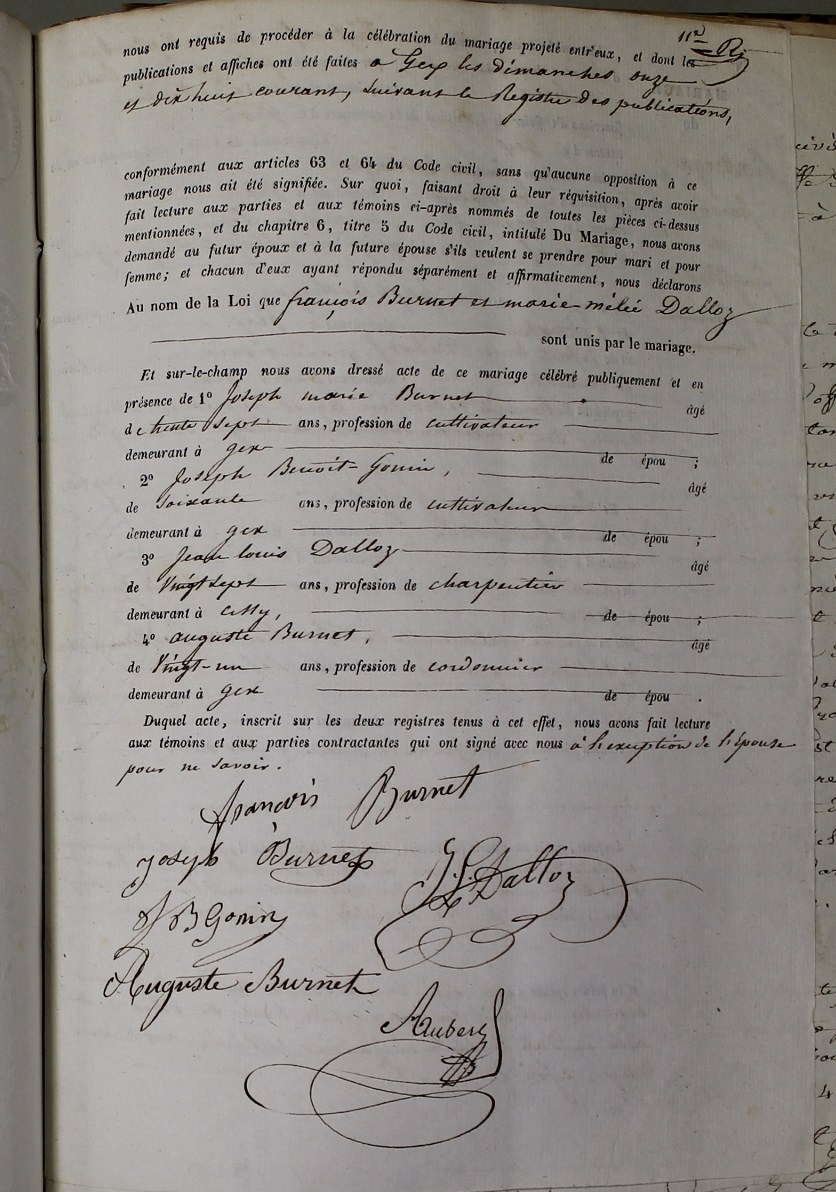 11e R
nous ont requis de procéder à la célébration du mariage projeté entr'eux, et dont les
publications et affiches ont été faites a Gex les dimanches onze
et dix huit courant, suivant le Registre des publications,
conformément aux articles 63 et 64 du Code civil, sans qu'aucune opposition à ce
mariage nous ait été signifiée. Sur quoi, faisant droit à leur réquisition, après avoir
fait lecture aux parties et aux témoins ci-après nommés de toutes les pièces ci-dessus
mentionnées, et du chapitre 6, titre 5 du Code civil, intitulé Du Mariage, nous avons
demandé au futur époux et à la future épouse s'ils veulent se prendre pour mari et pour
femme; et chacun d'eux ayant répondu séparément et affirmativement, nous déclarons
Au nom de la Loi que françois Burnet et marie mélie Dalloz
sont unis par le mariage.
Et sur-le-champ nous avons dressé acte de ce mariage célébré publiquement et en
présence de 1º Joseph marie Burnet âgé
de trente sept ans, profession de cultivateur
demeurant à gex de épou ;
2º Joseph Benoit Gonin, âgé
de soixante ans, profession de cultivateur
demeurant à gex de épou ;
3º Jean louis Dalloz âgé
de vingt sept ans, profession de charpentier
demeurant à cessy, de épou ;
4º auguste Burnet, âgé
de vingt-un ans, profession de cordonnier
demeurant à gex de épou .
Duquel acte, inscrit sur les deux registres tenus à cet effet, nous avons fait lecture
aux témoins et aux parties contractantes qui ont signé avec nous à l'exception de l'épouse
pour ne savoir.
françois Burnet
Joseph Burnet
J. L. Dalloz
J B Gonin
Auguste Burnet